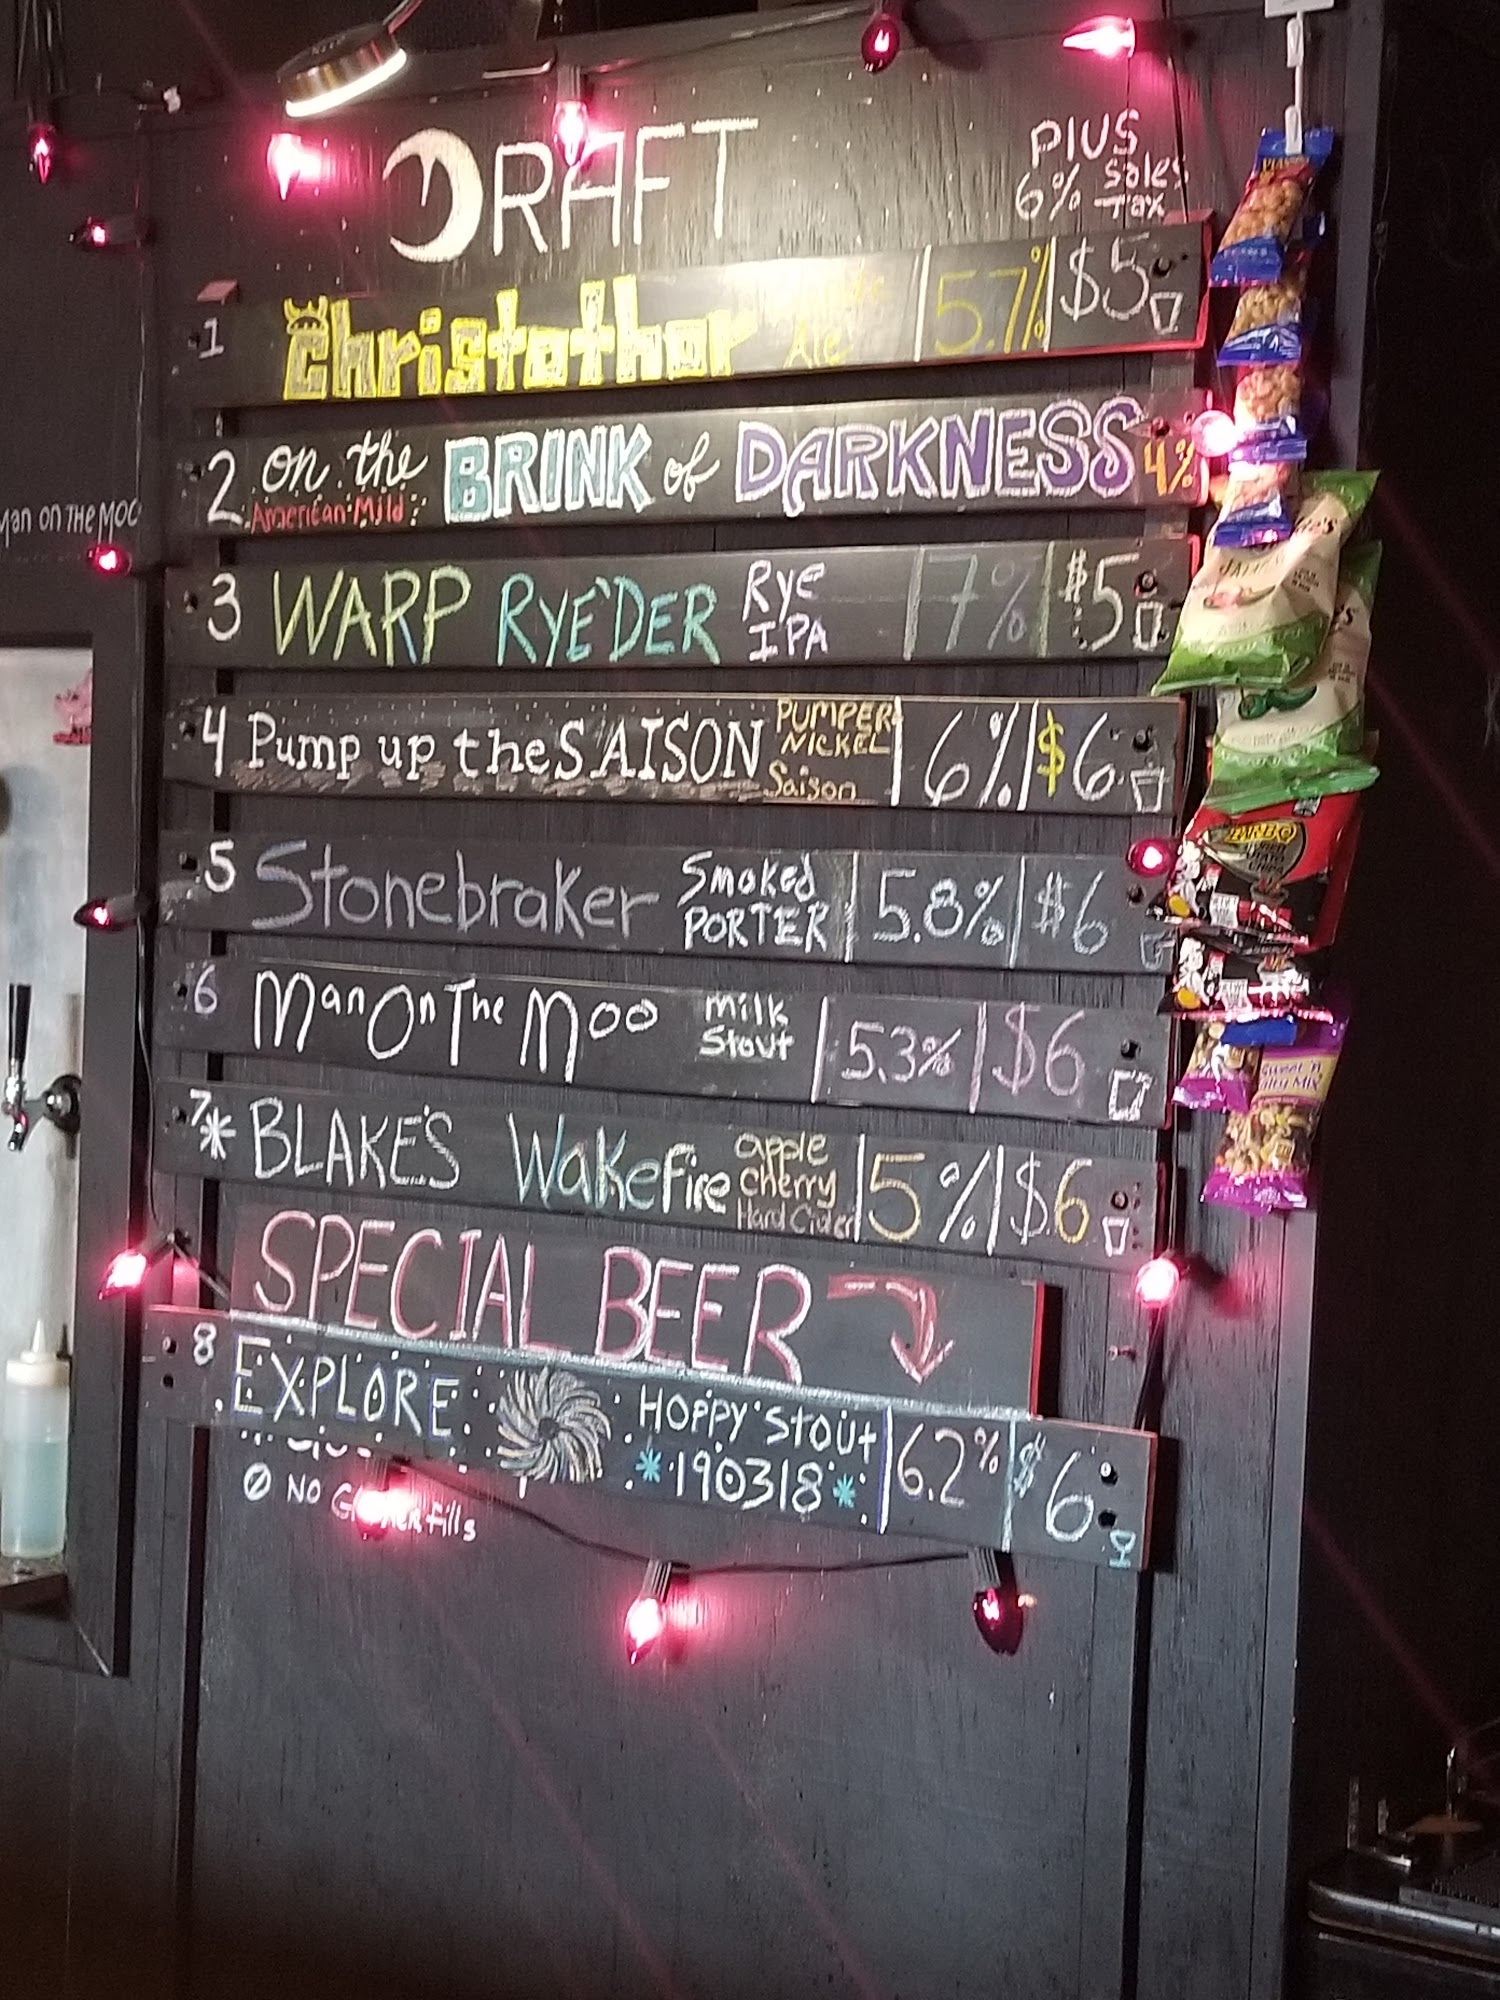 DRAFT
PLUS
6% Sales
Tax
1 Christothor Ale 5.7% $5
2 on the BRINK of DARKNESS 4%
American Mild
3 WARP RYE'DER Rye IPA 7% $5
4 Pump up the SAISON PUMPERNICKEL Saison 6% $6
5 Stonebraker Smoked PORTER 5.8% $6
6 Man On The Moo Milk Stout 5.3% $6
7* BLAKE'S Wakefire apple cherry Hard Cider 5% $6
SPECIAL BEER
8 EXPLORE HOPPY STOUT 6.2% $6
*190318*
NO Growler fills
Man on THE MOO
Sweet 'n